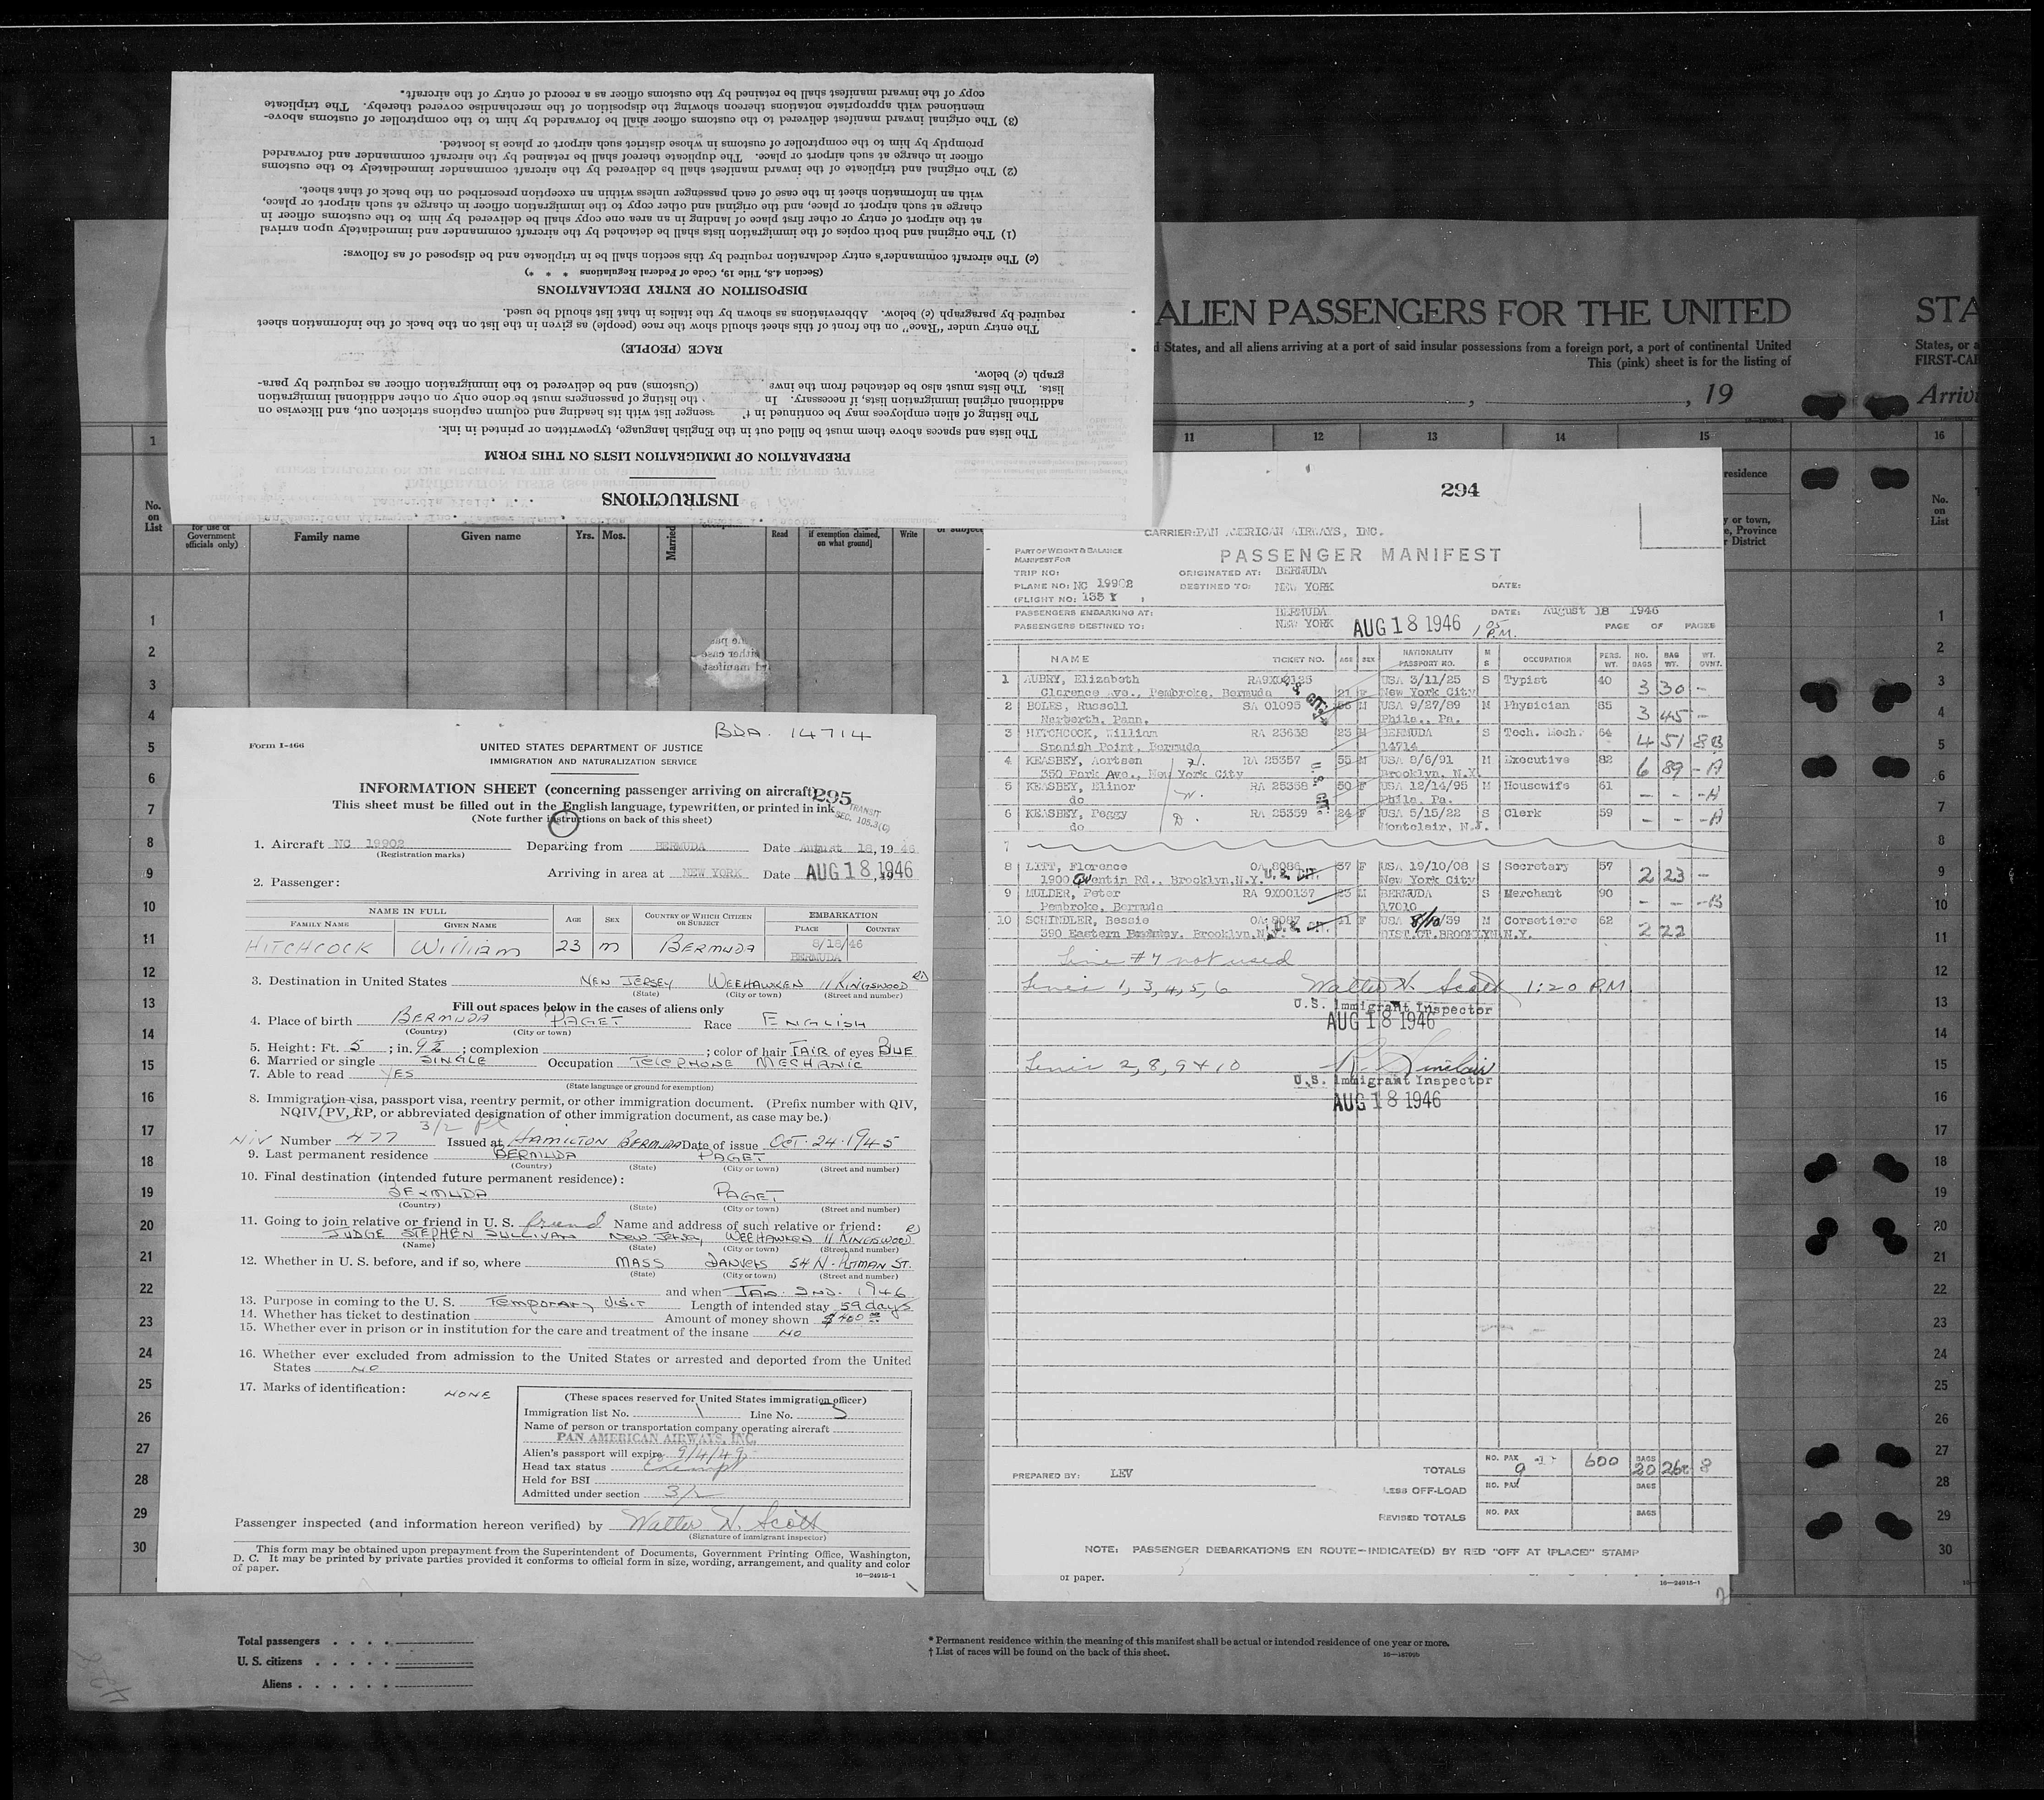 INSTRUCTIONS
PREPARATION OF IMMIGRATION LISTS ON THIS FORM
The lists and spaces above them must be filled out in the English language, typewritten or printed in ink.
The listing of alien employees may be continued in senger list with its heading and column captions stricken out, and likewise on
additional original immigration lists, if necessary. In the listing of passengers must be done only on other additional immigration
lists. The lists must also be detached from the inwa (Customs) and be delivered to the immigration officer as required by para-
graph (c) below.
RACE (PEOPLE)
The entry under "Race" on the front of this sheet should show the race (people) as given in the list on the back of the information sheet
required by paragraph (c) below. Abbreviations as shown by the italics in that list should be used.
DISPOSITION OF ENTRY DECLARATIONS
(Section 4.8, Title 19, Code of Federal Regulations * * *)
(c) The aircraft commander's entry declaration required by this section shall be in triplicate and be disposed of as follows:
(1) The original and both copies of the immigration lists shall be detached by the aircraft commander and immediately upon arrival
at the airport of entry or other first place of landing in an area one copy shall be delivered by him to the customs officer in
charge at such airport or place, and the original and other copy to the immigration officer in charge at such airport or place,
with an information sheet in the case of each passenger unless within an exception prescribed on the back of that sheet.
(2) The original and triplicate of the inward manifest shall be delivered by the aircraft commander immediately to the customs
officer in charge at such airport or place. The duplicate thereof shall be retained by the aircraft commander and forwarded
promptly by him to the comptroller of customs in whose district such airport or place is located.
(3) The original inward manifest delivered to the customs officer shall be forwarded by him to the comptroller of customs above-
mentioned with appropriate notations thereon showing the disposition of the merchandise covered thereby. The triplicate
copy of the inward manifest shall be retained by the customs officer as a record of entry of the aircraft.
ALIEN PASSENGERS FOR THE UNITED STA
d States, and all aliens arriving at a port of said insular possessions from a foreign port, a port of continental United States, or a
This (pink) sheet is for the listing of FIRST-CA
, 19 Arriv
1 11 12 13 14 15 16
No. on List
for use of Government officials only)
Family name Given name Yrs. Mos. Married Read if exemption claimed, on what ground] Write or subject
residence
y or town, e, Province r District
No. on List
BDA. 14714
Form I-466
UNITED STATES DEPARTMENT OF JUSTICE
IMMIGRATION AND NATURALIZATION SERVICE
INFORMATION SHEET (concerning passenger arriving on aircraft) 295
This sheet must be filled out in the English language, typewritten, or printed in ink
(Note further instructions on back of this sheet)
TRANSIT SEC. 105.3(C)
1. Aircraft NC 19902 Departing from BERMUDA Date August 18, 1946
(Registration marks)
Arriving in area at NEW YORK Date AUG 18 1946
2. Passenger:
NAME IN FULL AGE SEX COUNTRY OF WHICH CITIZEN OR SUBJECT EMBARKATION
FAMILY NAME GIVEN NAME PLACE COUNTRY
HITCHCOCK William 23 m BERMUDA 8/18/46 BERMUDA
3. Destination in United States NEW JERSEY WEEHAWKEN 11 KINGSWOOD RD
(State) (City or town) (Street and number)
Fill out spaces below in the cases of aliens only
4. Place of birth BERMUDA PAGET Race ENGLISH
(Country) (City or town)
5. Height: Ft. 5 ; in. 9½ ; complexion ; color of hair FAIR of eyes BLUE
6. Married or single SINGLE Occupation TELEPHONE MECHANIC
7. Able to read YES
(State language or ground for exemption)
8. Immigration visa, passport visa, reentry permit, or other immigration document. (Prefix number with QIV,
NQIV, PV, RP, or abbreviated designation of other immigration document, as case may be.)
3/2
NIV Number 477 Issued at HAMILTON BERMUDA Date of issue OCT. 24. 1945
9. Last permanent residence BERMUDA PAGET
(Country) (State) (City or town) (Street and number)
10. Final destination (intended future permanent residence):
BERMUDA PAGET
(Country) (State) (City or town) (Street and number)
11. Going to join relative or friend in U. S. friend Name and address of such relative or friend:
JUDGE STEPHEN SULLIVAN NEW JERSEY WEEHAWKEN 11 KINGSWOOD RD
(Name) (State) (City or town) (Street and number)
12. Whether in U. S. before, and if so, where MASS DANVERS 54 N. PUTMAN ST.
(State) (City or town) (Street and number)
and when JAN. 2ND. 1946
13. Purpose in coming to the U. S. Temporary visit Length of intended stay 59 days
14. Whether has ticket to destination Amount of money shown $400
15. Whether ever in prison or in institution for the care and treatment of the insane NO
16. Whether ever excluded from admission to the United States or arrested and deported from the United
States NO
17. Marks of identification: NONE
(These spaces reserved for United States immigration officer)
Immigration list No. 1 Line No. 3
Name of person or transportation company operating aircraft
PAN AMERICAN AIRWAYS, INC.
Alien's passport will expire 9/4/49
Head tax status Exempt
Held for BSI
Admitted under section 3/2
Passenger inspected (and information hereon verified) by Walter N. Scott
(Signature of immigrant inspector)
This form may be obtained upon prepayment from the Superintendent of Documents, Government Printing Office, Washington,
D. C. It may be printed by private parties provided it conforms to official form in size, wording, arrangement, and quality and color
of paper.
16—24915-1
294
CARRIER: PAN AMERICAN AIRWAYS, INC.
PART OF WEIGHT & BALANCE MANIFEST FOR
PASSENGER MANIFEST
TRIP NO: ORIGINATED AT: BERMUDA
PLANE NO: NC 19902 DESTINED TO: NEW YORK DATE:
(FLIGHT NO: 135 Y )
PASSENGERS EMBARKING AT: BERMUDA DATE: August 18 1946
PASSENGERS DESTINED TO: NEW YORK AUG 18 1946 1 05 P.M. PAGE OF PAGES
NAME TICKET NO. AGE SEX NATIONALITY PASSPORT NO. M S OCCUPATION PERS. WT. NO. BAGS BAG WT. WT. OVNT.
1 AUBRY, Elizabeth RA9X00125 USA 3/11/25 S Typist 40 3 30 -
Clarence Ave., Pembroke, Bermuda 21 F New York City
2 BOLES, Russell SA 01095 56 M USA 9/27/89 M Physician 85 3 45 -
Narberth, Penn. Phila., Pa.
3 HITCHCOCK, William RA 23638 23 M BERMUDA S Tech. Mech. 64 4 51 8 B
Spanish Point, Bermuda 14714
4 KEASBEY, Aortsen H. RA 25357 55 M USA 8/6/91 M Executive 82 6 89 - A
350 Park Ave., New York City Brooklyn, N.Y.
5 KEASBEY, Elinor W. RA 25358 50 F USA 12/14/95 M Housewife 61 - - - A
do Phila. Pa.
6 KEASBEY, Peggy D. RA 25359 24 F USA 5/15/22 S Clerk 59 - - - A
do Montclair, N.J.
7
8 LITT, Florence OA 8086 U.S. CIT. 37 F USA 19/10/08 S Secretary 57 2 23 -
1900 Quentin Rd., Brooklyn, N.Y. New York City
9 MULDER, Peter RA 9X00137 23 M BERMUDA S Merchant 90 - - - B
Pembroke, Bermuda 17010
10 SCHINDLER, Bessie OA 8087 U.S. CIT. 41 F USA 8/10/39 M Corsetiere 62 2 22
390 Eastern Parkway, Brooklyn, N.Y. DIST. CT. BROOKLYN N.Y.
Line #7 not used
Lines 1, 3, 4, 5, 6 Walter N. Scott 1:20 P.M.
U.S. Immigrant Inspector
AUG 18 1946
Lines 2, 8, 9 + 10 R. Sinclair
U.S. Immigrant Inspector
AUG 18 1946
PREPARED BY: LEV TOTALS NO. PAX 9 600 BAGS 20 260 8
LESS OFF-LOAD NO. PAX BAGS
REVISED TOTALS NO. PAX BAGS
NOTE: PASSENGER DEBARKATIONS EN ROUTE—INDICATE(D) BY RED "OFF AT (PLACE)" STAMP
of paper. 16—24915-1
Total passengers
U. S. citizens
Aliens
* Permanent residence within the meaning of this manifest shall be actual or intended residence of one year or more.
† List of races will be found on the back of this sheet.